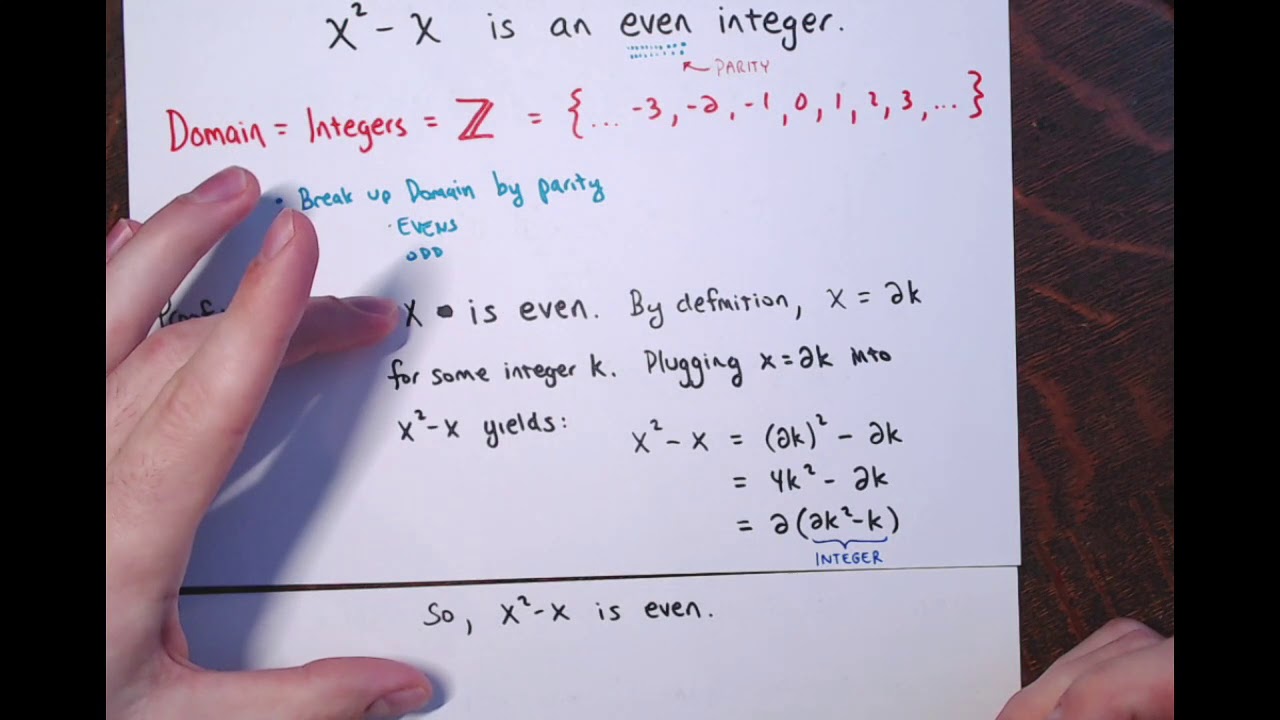 x² - x is an even integer.
PARITY
Domain = Integers = ℤ = {... -3, -2, -1, 0, 1, 2, 3, ...}
• Break up Domain by parity
· EVENS
ODD
Proof: X is even. By definition, x = 2k
for some integer k. Plugging x = 2k into
x² - x yields: x² - x = (2k)² - 2k
= 4k² - 2k
= 2(2k² - k)
INTEGER
So, x² - x is even.